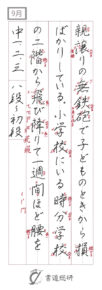 9月
親譲の無鉄砲で子どものときから損
ばかりしている。小学校にいる時分学校
の二階から飛び降りて一週間ほど腰を
中一二三 八段〜初段
書道総研